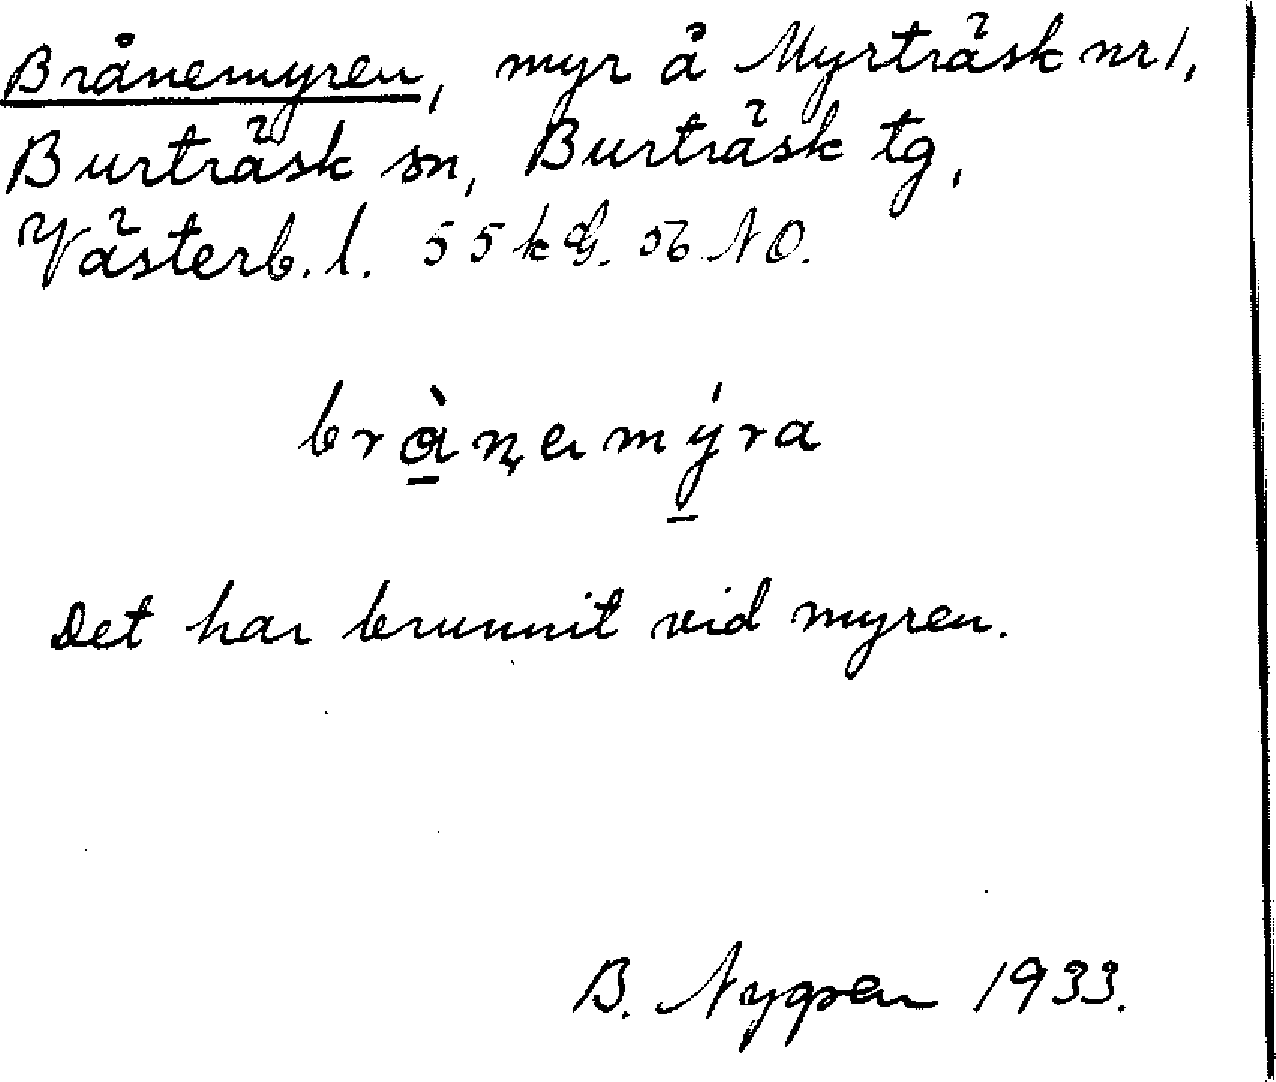 Brånemyren, myr å Myrträsk nr 1,
Burträsk sn, Burträsk tg,
Västerb. l. 55 kg. 56 NO.
brànemýra
Det har brunnit vid myren.
B. Nygren 1933.